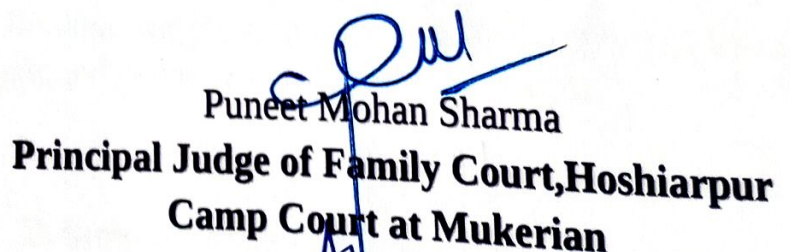 Puneet Mohan Sharma
Principal Judge of Family Court,Hoshiarpur
Camp Court at Mukerian